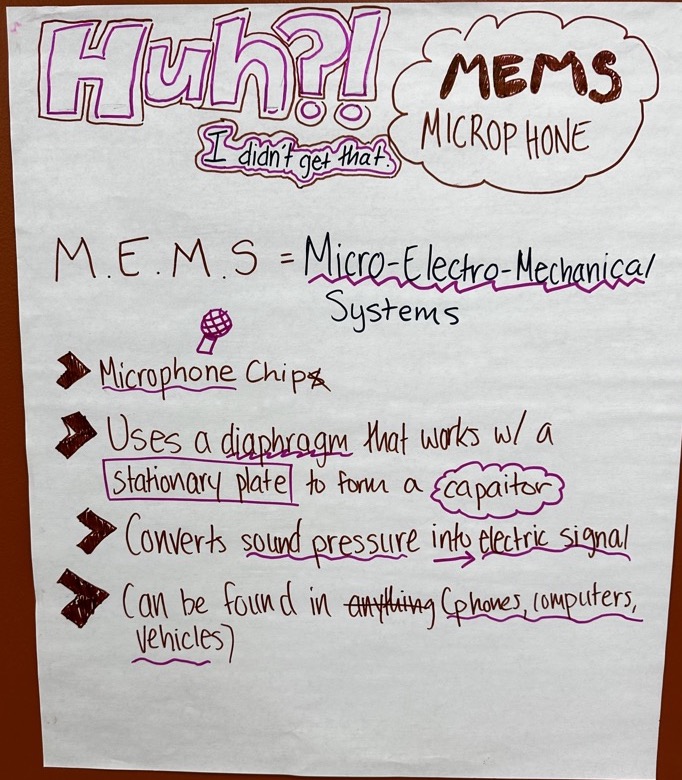 Huh?!
I didn't get that.
MEMS
MICROPHONE
M.E.M.S = Micro-Electro-Mechanical
Systems
Microphone Chip
Uses a diaphragm that works w/ a
stationary plate to form a capaitor
Converts sound pressure into electric signal
Can be found in anything (phones, computers,
vehicles)